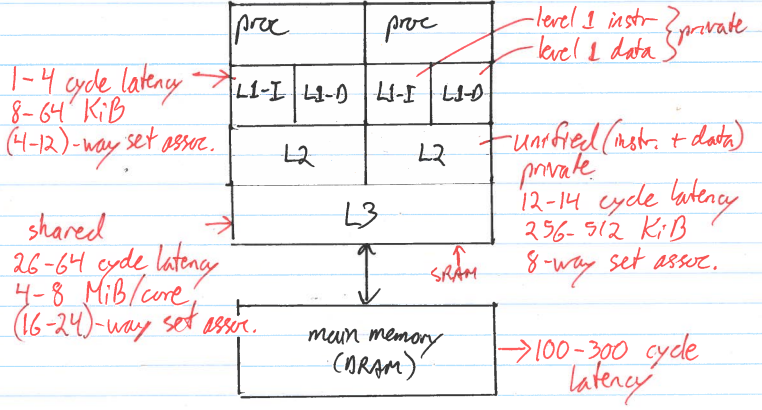 proc
proc
level 1 instr
level 1 data
private
1-4 cycle latency
8-64 KiB
(4-12)-way set assoc.
L1-I
L1-D
L1-I
L1-D
L2
L2
unified (instr. + data)
private
12-14 cycle latency
256-512 KiB
8-way set assoc.
L3
shared
26-64 cycle latency
4-8 MiB/core
(16-24)-way set assoc.
SRAM
main memory
(DRAM)
100-300 cycle
latency